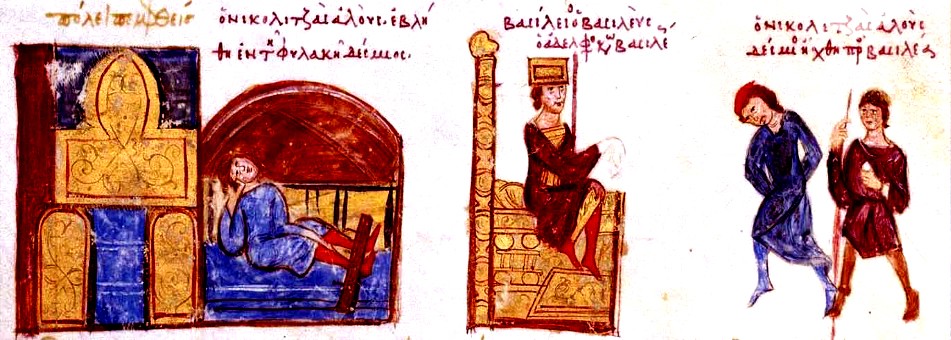 ὁ νικολιτζᾶς ἁλοὺς· ἐβλή
θη ἐν τῇ φυλακῇ δέσμιος.
βασίλειος ὁ βασιλεὺς
ὁ ἀδελφὸς κων βασιλε
ὁ νικολιτζᾶς ἁλοὺς
δέσμιος ἤχθη πρ βασιλέα